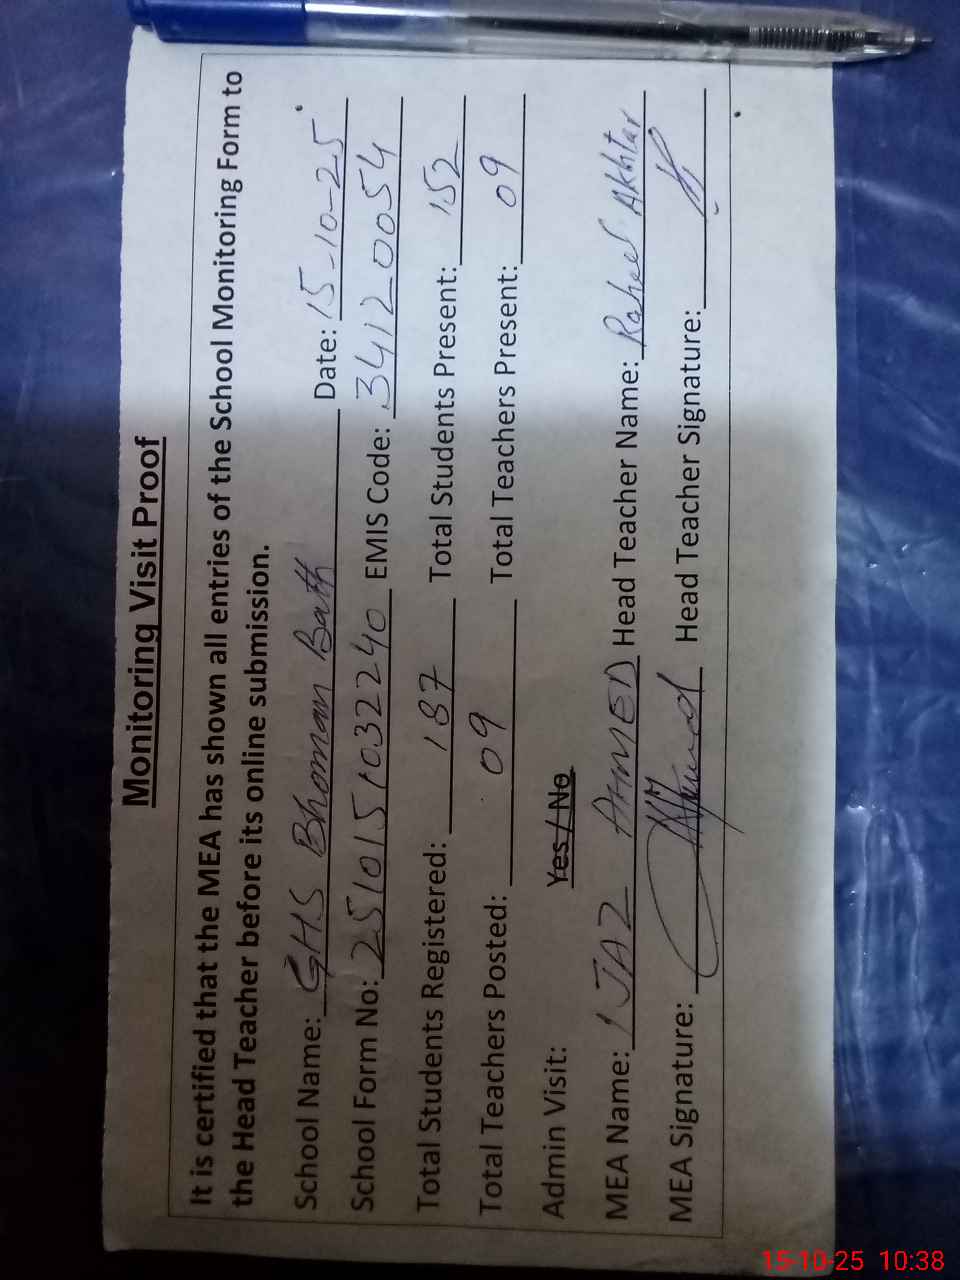 Monitoring Visit Proof
It is certified that the MEA has shown all entries of the School Monitoring Form to
the Head Teacher before its online submission.
School Name: GHS Bhoman Bath Date: 15-10-25
School Form No: 2510151032240 EMIS Code: 34120054
Total Students Registered: 187 Total Students Present: 152
Total Teachers Posted: 09 Total Teachers Present: 09
Admin Visit: Yes / No
MEA Name: IJAZ AHMED Head Teacher Name: Raheel Akhtar
MEA Signature: Head Teacher Signature:
15-10-25 10:38